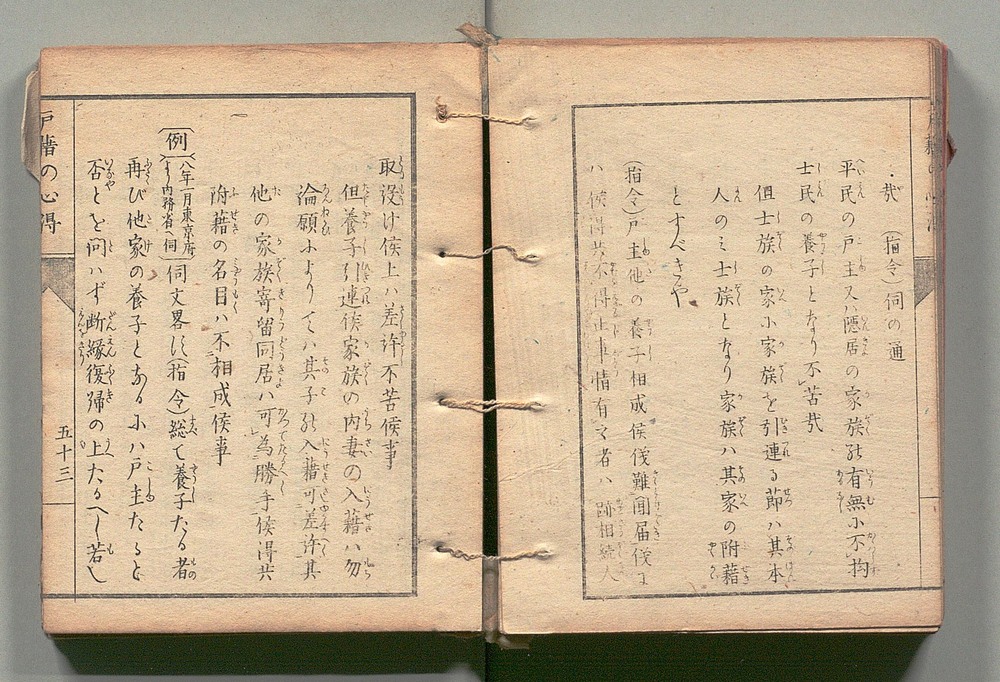 哉 (指令)伺の通
平民の戸主又ハ隠居の家族能有無小不拘
士民の養子となり不苦哉
但士族の家小家族を引連る節ハ其本
人のミ士族となり家族ハ其家の附藉
とすべきや
(指令)戸主他の養子相成候儀難聞届候
ハ 候得共不得止事情有 者ハ 跡相続人
取設け候上ハ差許不苦候事
但養子引連候家族の内妻の入藉ハ勿
論願ふよりてハ其子能入藉可差许其
他の家族寄留同居ハ可為勝手候得共
附藉の名目ハ不相成候事
(例)(八年一月東京府より内務省へ伺)伺文畧ス(指令)総て養子たる者
再び他家の養子となる小ハ戸主たると
否とを问ハず断縁復帰の上たるへし若し
戸藉の心得
五十三